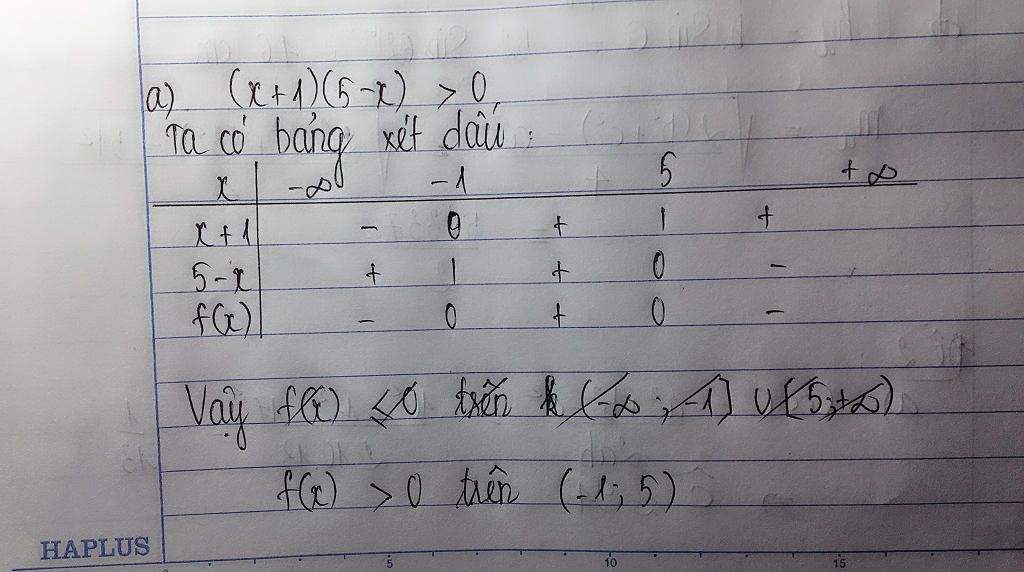 a) (x+1)(5-x) > 0,
Ta có bảng xét dấu :
x | -∞ -1 5 +∞
x+1 | - 0 + | +
5-x | + | + 0 -
f(x) | - 0 + 0 -
Vậy f(x) ≤ 0 trên (-∞; -1] ∪ [5; +∞)
f(x) > 0 trên (-1; 5)
HAPLUS
5 10 15